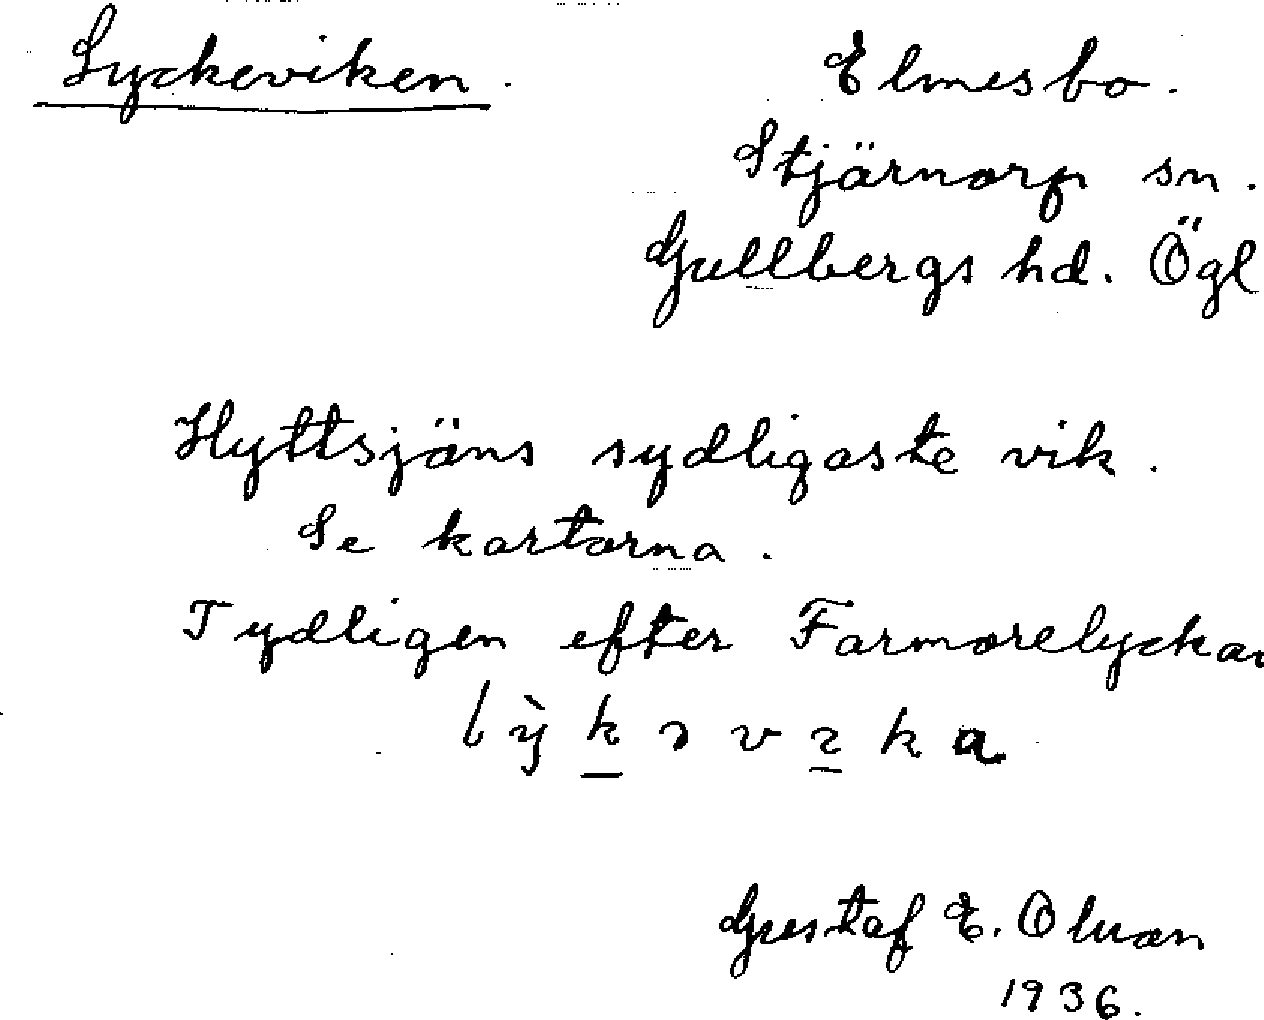 Lyckeviken. Elmesbo.
Stjärnorp sn.
Gullbergs hd. Ögl
Hyttsjöns sydligaste vik.
Se kartorna.
Tydligen efter Farmorelyckan
Gustaf E.
1936.